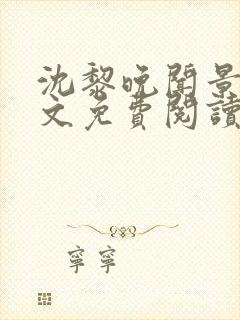 沈黎晚聞景
文免費閱讀
寧寧